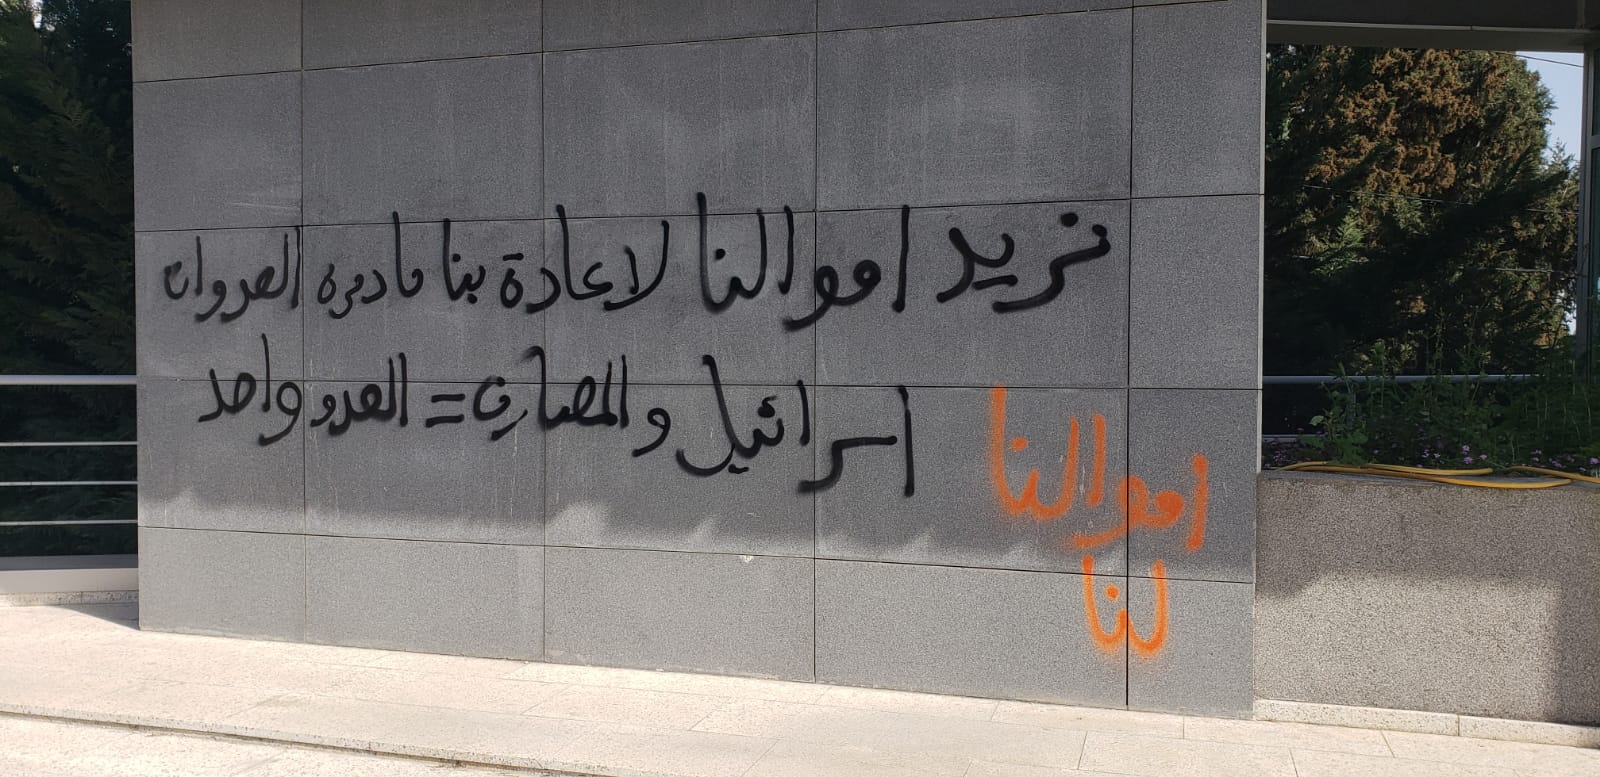 نريد اموالنا لاعادة بنا ما دمره العدوان
اسرائيل والمصارف = العدو واحد
اموالنا
لنا